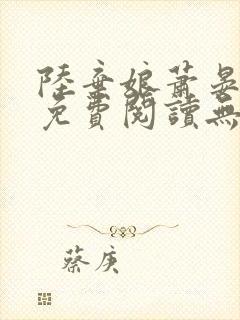 陸棄娘蕭晏
免費閱讀無
蔡庚